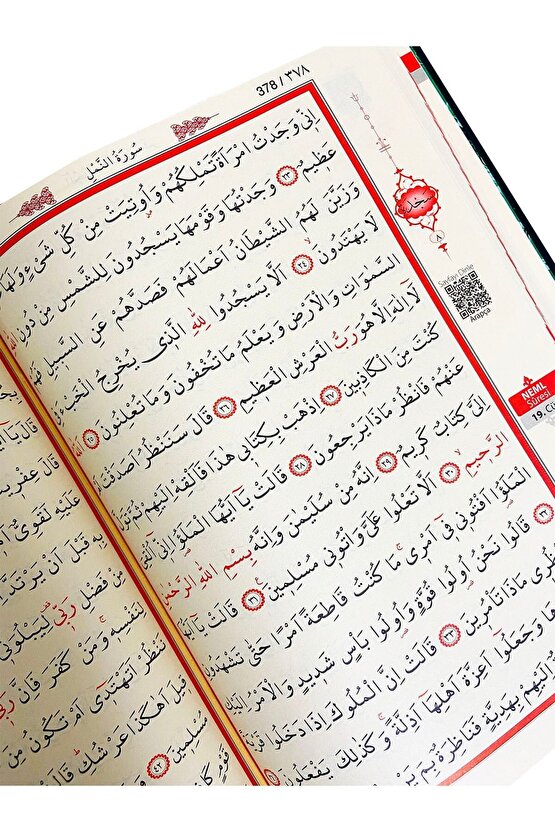 378 / ٣٧٨
سُورَةُ النَّمْلِ
اِنّٖي وَجَدْتُ امْرَاَةً تَمْلِكُهُمْ وَاُوتِيَتْ مِنْ كُلِّ شَيْءٍ وَلَهَا
عَظٖيمٌ ٢٣ وَجَدْتُهَا وَقَوْمَهَا يَسْجُدُونَ لِلشَّمْسِ مِنْ دُونِ اللّٰهِ
وَزَيَّنَ لَهُمُ الشَّيْطَانُ اَعْمَالَهُمْ فَصَدَّهُمْ عَنِ السَّبٖيلِ فَهُمْ
لَا يَهْتَدُونَ ٢٤ اَلَّا يَسْجُدُوا لِلّٰهِ الَّذٖي يُخْرِجُ الْخَبْءَ فِي
السَّمٰوَاتِ وَالْاَرْضِ وَيَعْلَمُ مَا تُخْفُونَ وَمَا تُعْلِنُونَ ٢٥ اَللّٰهُ
لَا اِلٰهَ اِلَّا هُوَ رَبُّ الْعَرْشِ الْعَظٖيمِ ٢٦ قَالَ سَنَنْظُرُ اَصَدَقْتَ اَمْ
كُنْتَ مِنَ الْكَاذِبٖينَ ٢٧ اِذْهَبْ بِكِتَابٖي هٰذَا فَاَلْقِهْ اِلَيْهِمْ ثُمَّ تَوَلَّ
عَنْهُمْ فَانْظُرْ مَاذَا يَرْجِعُونَ ٢٨ قَالَتْ يَا اَيُّهَا الْمَلَؤُا اِنّٖي اُلْقِيَ
اِلَيَّ كِتَابٌ كَرٖيمٌ ٢٩ اِنَّهُ مِنْ سُلَيْمٰنَ وَاِنَّهُ بِسْمِ اللّٰهِ الرَّحْمٰنِ
الرَّحٖيمِ ٣٠ اَلَّا تَعْلُوا عَلَيَّ وَأْتُونٖي مُسْلِمٖينَ ٣١ قَالَتْ يَا اَيُّهَا
الْمَلَؤُا اَفْتُونٖي فٖي اَمْرٖي مَا كُنْتُ قَاطِعَةً اَمْرًا حَتّٰى تَشْهَدُونِ
٣٢ قَالُوا نَحْنُ اُولُوا قُوَّةٍ وَاُولُوا بَأْسٍ شَدٖيدٍ وَالْاَمْرُ اِلَيْكِ
فَانْظُرٖي مَاذَا تَأْمُرٖينَ ٣٣ قَالَتْ اِنَّ الْمُلُوكَ اِذَا دَخَلُوا قَرْيَةً
وَجَعَلُوا اَعِزَّةَ اَهْلِهَا اَذِلَّةً وَكَذٰلِكَ يَفْعَلُونَ
اِلَيْهِمْ بِهَدِيَّةٍ فَنَاظِرَةٌ بِمَ
٨
Sayfayı Dinle
Arapça
NEML
Sûresi
19.
قَالَ عِفْرٖيتٌ
عَلَيْهِ لَقَوِيٌّ
بِهٖ قَبْلَ اَنْ يَرْتَدَّ
مِنْ فَضْلِ رَبّٖي لِيَبْلُوَنٖي
لِنَفْسِهٖ وَمَنْ كَفَرَ فَاِنَّ رَبّٖي
نَنْظُرْ اَتَهْتَدٖي اَمْ تَكُونُ مِنَ
قٖيلَ اَهٰكَذَا عَرْشُكِ قَالَتْ
مُسْلِمٖينَ ٤٢